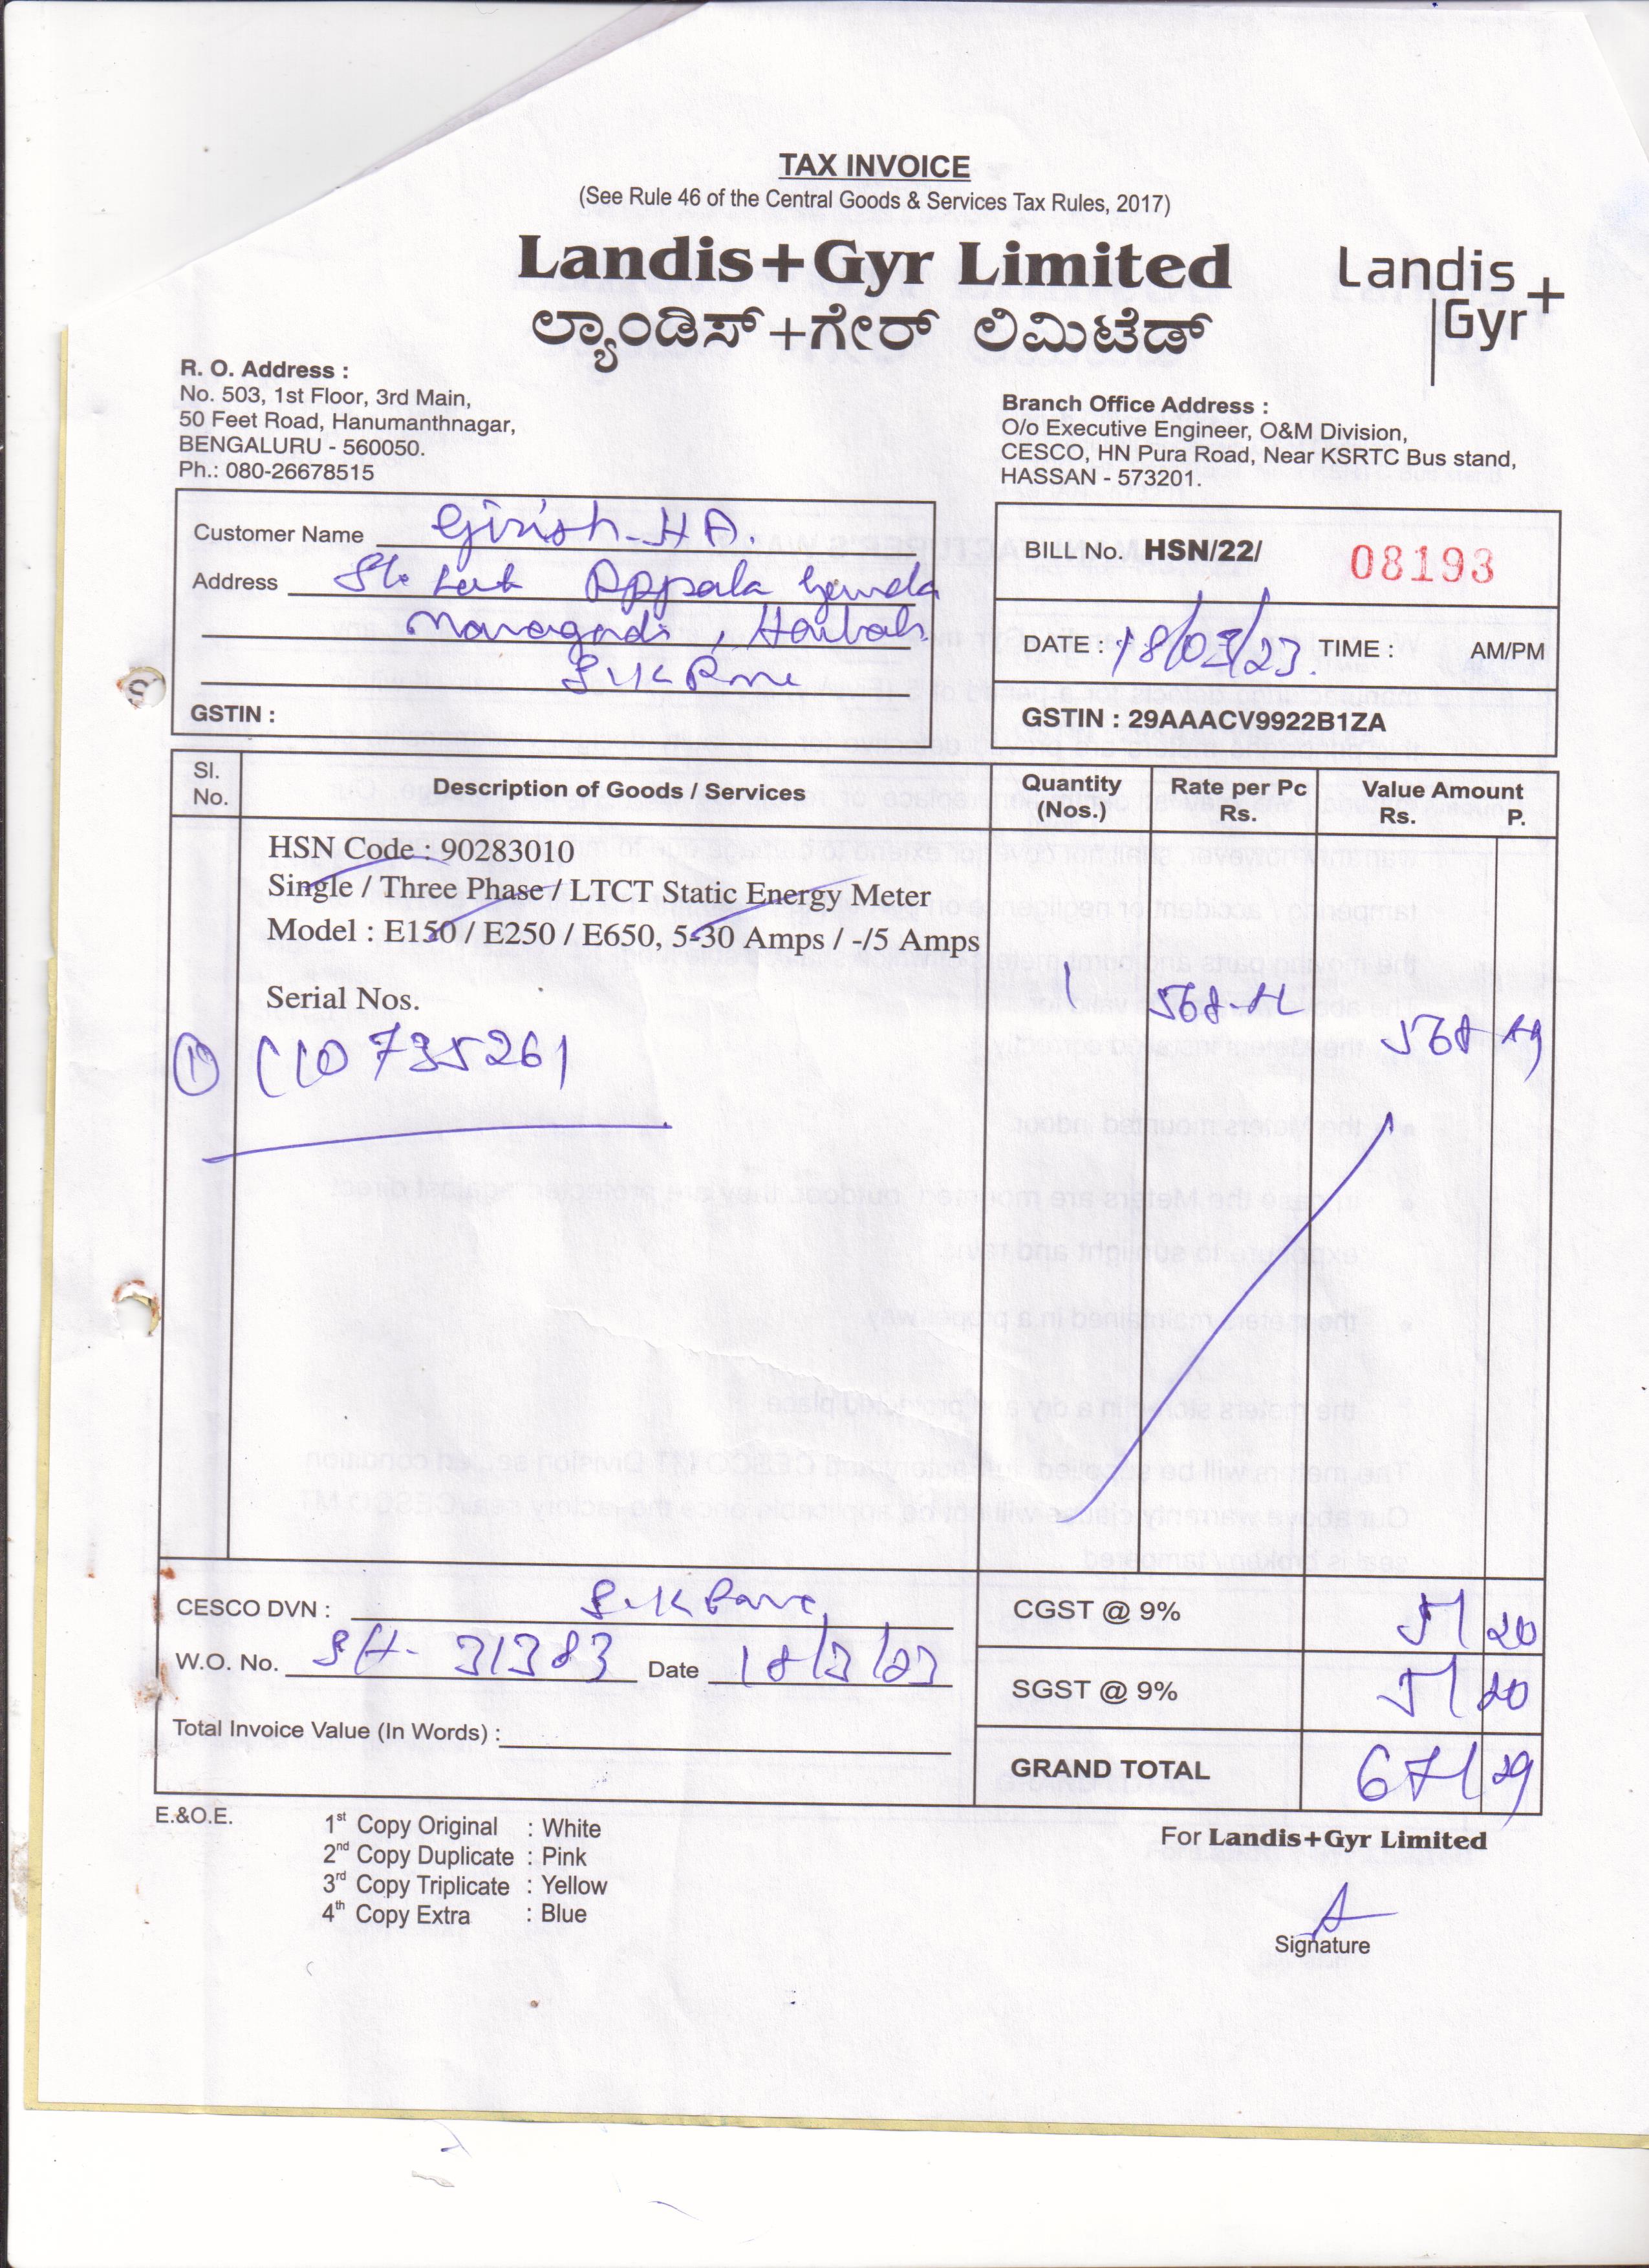 TAX INVOICE
(See Rule 46 of the Central Goods & Services Tax Rules, 2017)
Landis+Gyr Limited
ಲ್ಯಾಂಡಿಸ್+ಗೇರ್ ಲಿಮಿಟೆಡ್
Landis
Gyr+
R. O. Address :
No. 503, 1st Floor, 3rd Main,
50 Feet Road, Hanumanthnagar,
BENGALURU - 560050.
Ph.: 080-26678515
Branch Office Address :
O/o Executive Engineer, O&M Division,
CESCO, HN Pura Road, Near KSRTC Bus stand,
HASSAN - 573201.
Customer Name Girish-HA.
Address Appala Gowda
GSTIN :
BILL No. HSN/22/ 08193
DATE : 18/03/23. TIME : AM/PM
GSTIN : 29AAACV9922B1ZA
Sl. No. Description of Goods / Services Quantity (Nos.) Rate per Pc Rs. Value Amount Rs. P.
HSN Code : 90283010
Single / Three Phase / LTCT Static Energy Meter
Model : E150 / E250 / E650, 5-30 Amps / -/5 Amps
Serial Nos.
1 568
① C10735261 568
CESCO DVN :
W.O. No. 31383 Date 18/3/23
Total Invoice Value (In Words) :
CGST @ 9% 51 20
SGST @ 9% 51 20
GRAND TOTAL 671 29
E.&O.E.
1st Copy Original : White
2nd Copy Duplicate : Pink
3rd Copy Triplicate : Yellow
4th Copy Extra : Blue
For Landis+Gyr Limited
Signature